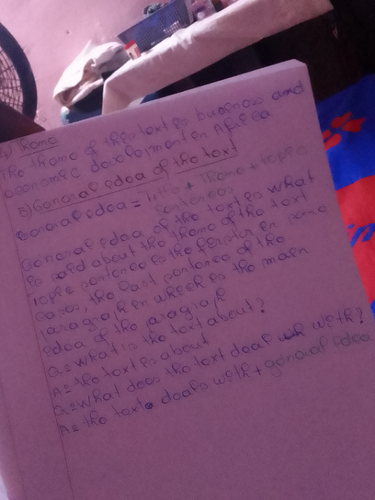 2) Theme
The theme of the text is business and
economic development in Africa
3) General idea of the text
General idea = title + theme + topic
sentences
General idea of the text is what
is said about the theme of the text
topic sentence is the first or in some
cases, the last sentence of the
paragraph which is the main
idea of the aragraph
Q = what is the text about?
A = the text is about
Q = what does the text deal with?
A = the text deals with + general idea